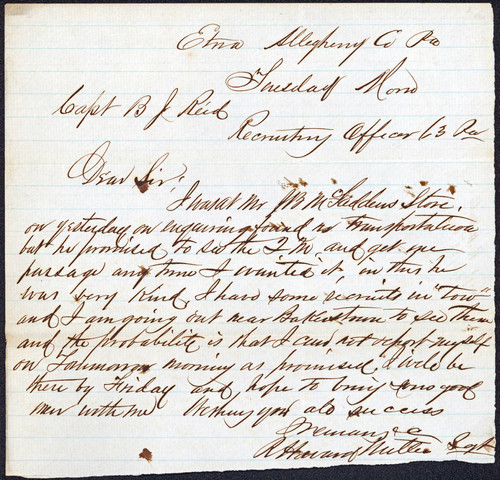 Etna Allegheny Co Pa
Tuesday Morn
Capt B J Reid
Recruiting Officer 63 Pa
Dear Sir;
I was at Mr J B McFaddens Store,
on yesterday on enquiring found no transportation
but he promised to see the Q.M. and get me
passage any time I wanted it, in this he
was very kind I have some recruits in "tow"
and I am going out near Bakerstown to see them
and the probability is that I can not report myself
on Tomorrow morning as promised. I will be
there by Friday and hope to bring some good
men with me Wishing you all success
I remain &c
Howard Sgt